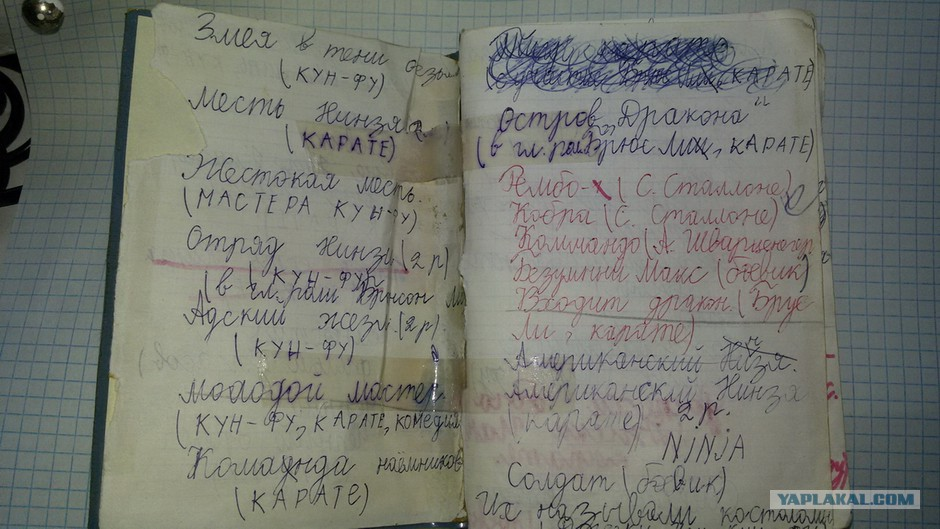 Змея в тени
(КУН-ФУ)
Месть Нинзя
(КАРАТЕ)
Жестокая месть.
(МАСТЕРА КУН-ФУ)
Отряд Нинзи (2 р)
(КУН-ФУ)
(в гл. роли
Адский жезл (2 р).
(КУН-ФУ)
Молодой мастер
(КУН-ФУ, КАРАТЕ, комедия
Команда наёмников
(КАРАТЕ)
КАРАТЕ)
Остров „Дракона"
(в гл. роли Брюс Лиц, КАРАТЕ)
Рембо-1 (С. Сталлоне)
Кобра (С. Сталлоне)
Коммандо (А. Шварценегер
Безумный Макс (боевик)
Входит дракон (Брус
Ли, карате)
Американский
Американский Нинзя
(карате). 2 р.
NINJA
Солдат (боевик)
Их называли костолом
YAPLAKAL.COM